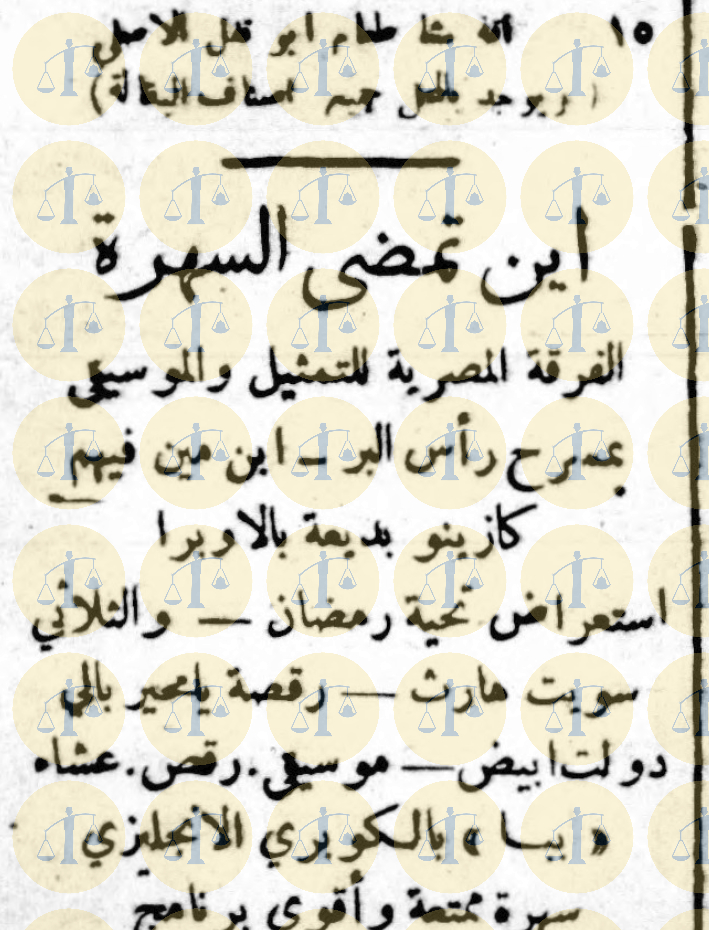 ١٥ اقه بشا طعام ابو تقل الاصلي
( ويوجد بالمحل جميع اصناف البقالة )
اين تمضى السهرة
الفرقة المصرية للتمثيل والموسيقى
بمسرح رأس البر — ابن مين فيهم
كازينو بديعة بالاوبرا
استعراض تحية رمضان — والثلاثي
سويت هارث — رقصة يامحير بالي
دولت ابيض — موسيقى . رقص . عشاء
« ببا » بالكوبري الانجليزي
سهرة ممتعة وأقوى برنامج